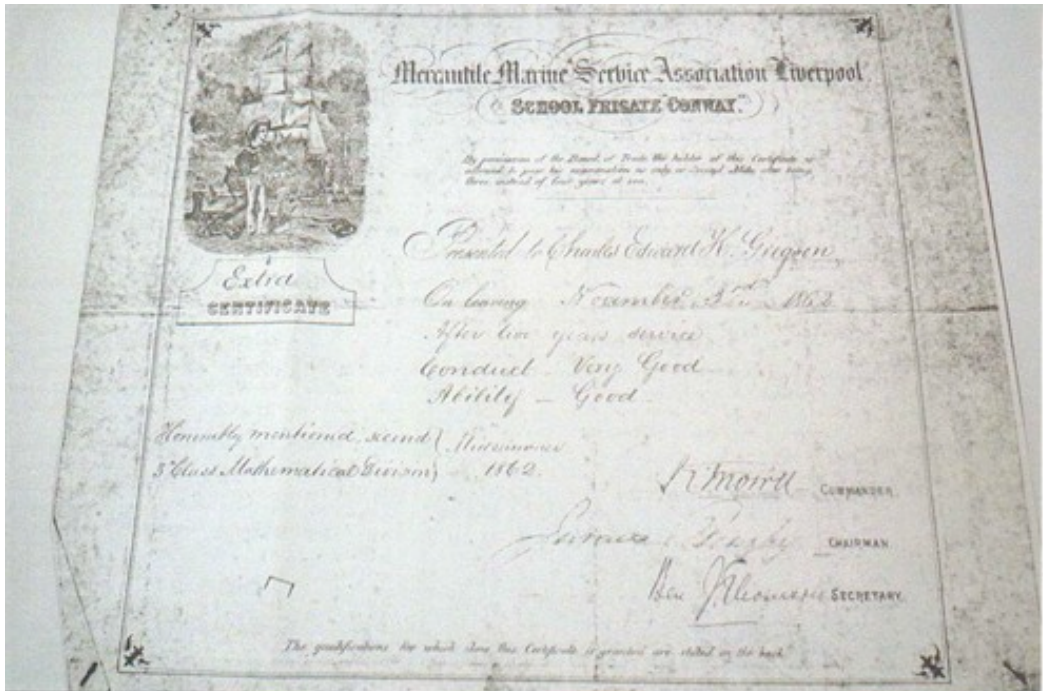 Mercantile Marine Service Association Liverpool.
SCHOOL FRIGATE "CONWAY."
By permission of the Board of Trade the holder of this Certificate is
allowed to pass his examination as only or Second Mate after being
three instead of four years at sea.
Extra
CERTIFICATE
Presented to Charles Edward H.
On leaving November 1862
After two years service
Conduct - Very Good
Ability - Good
Honorably mentioned, second { Midsummer
3rd Class Mathematical Division } 1862.
COMMANDER.
CHAIRMAN.
SECRETARY.
The qualifications for which alone this Certificate is granted are stated on the back.